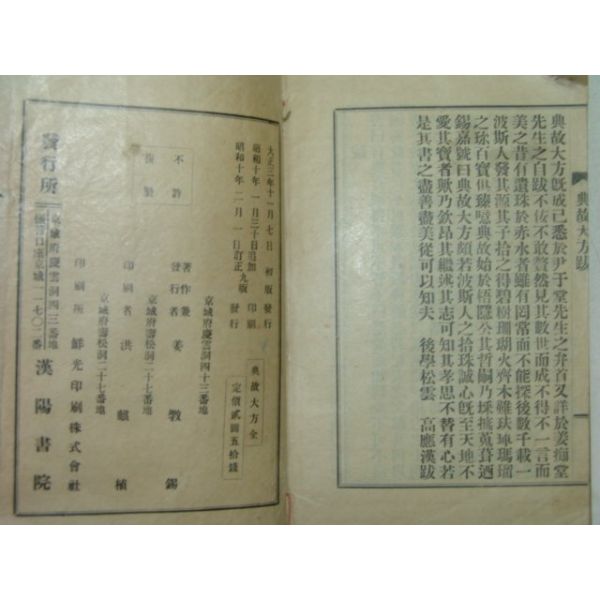 典故大方跋
典故大方旣成已悉於尹于堂先生之弁首又詳於姜痴堂
先生之自跋不佞不敢贅然見其數世而成不得不一言而
美之昔有遺珠於赤水者雖有罔常而不能探後數千載一
波斯人發其源其子拾之得碧樹珊瑚火齊木難玞琿瑪瑠
之珎百寶俱臻噫典故始於梧隱公其哲嗣乃採摭蒐葺迺
錫嘉號曰典故大方頗若波斯人之拾珠誠心旣至天地不
愛其寶者歟乃欽昂其繼述其志可知其孝思不替有心若
是其書之盡善盡美從可以知夫　後學松雲　高應漢跋
大正三年十一月七日 初版 發行
昭和十年一月三十日追加 印刷
昭和十年二月一日訂正九版 發行
典故大方全
定價貳圓五拾錢
不許
複製
京城府慶雲洞四十三番地
著作兼
發行者 姜斅錫
京城府壽松洞二十七番地
印刷者 洪
京城府壽松洞二十七番地
印刷所 鮮光印刷株式會社
發行所
京城府慶雲洞四三番地
漢陽書院